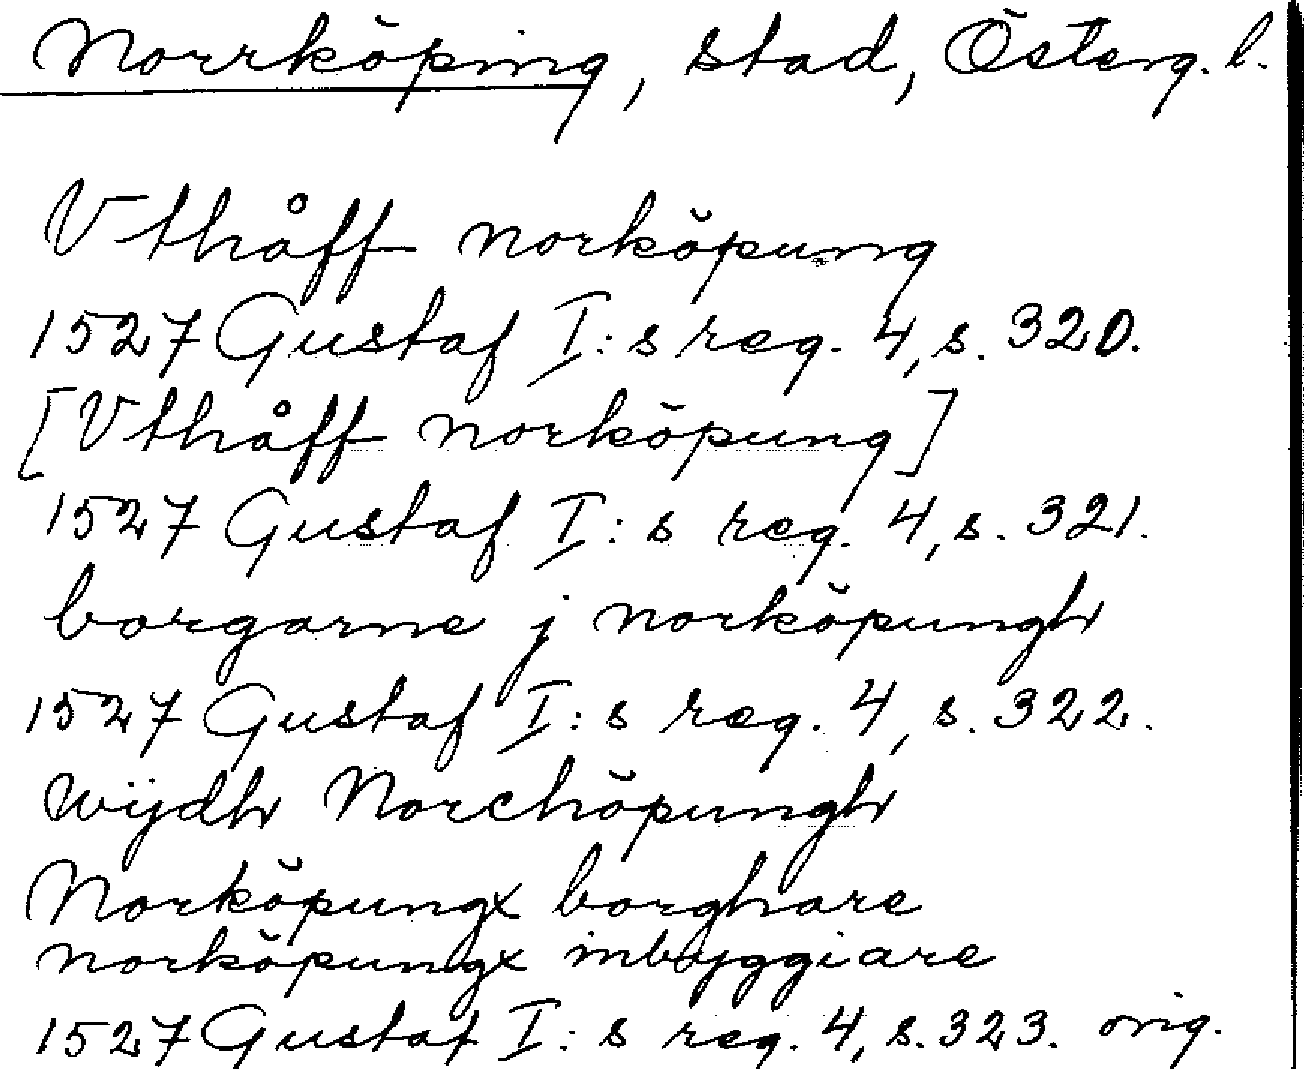 Norrköping, stad, Österg. l.
Vthåff norköpung
1527 Gustaf I:s reg. 4, s. 320.
[Vthåff norköpung]
1527 Gustaf I:s reg. 4, s. 321.
borgarne j norköpungh
1527 Gustaf I:s reg. 4, s. 322.
wijdh Norchöpungh
Norköpungx borghare
norköpungx inbyggiare
1527 Gustaf I:s reg. 4, s. 323. orig.